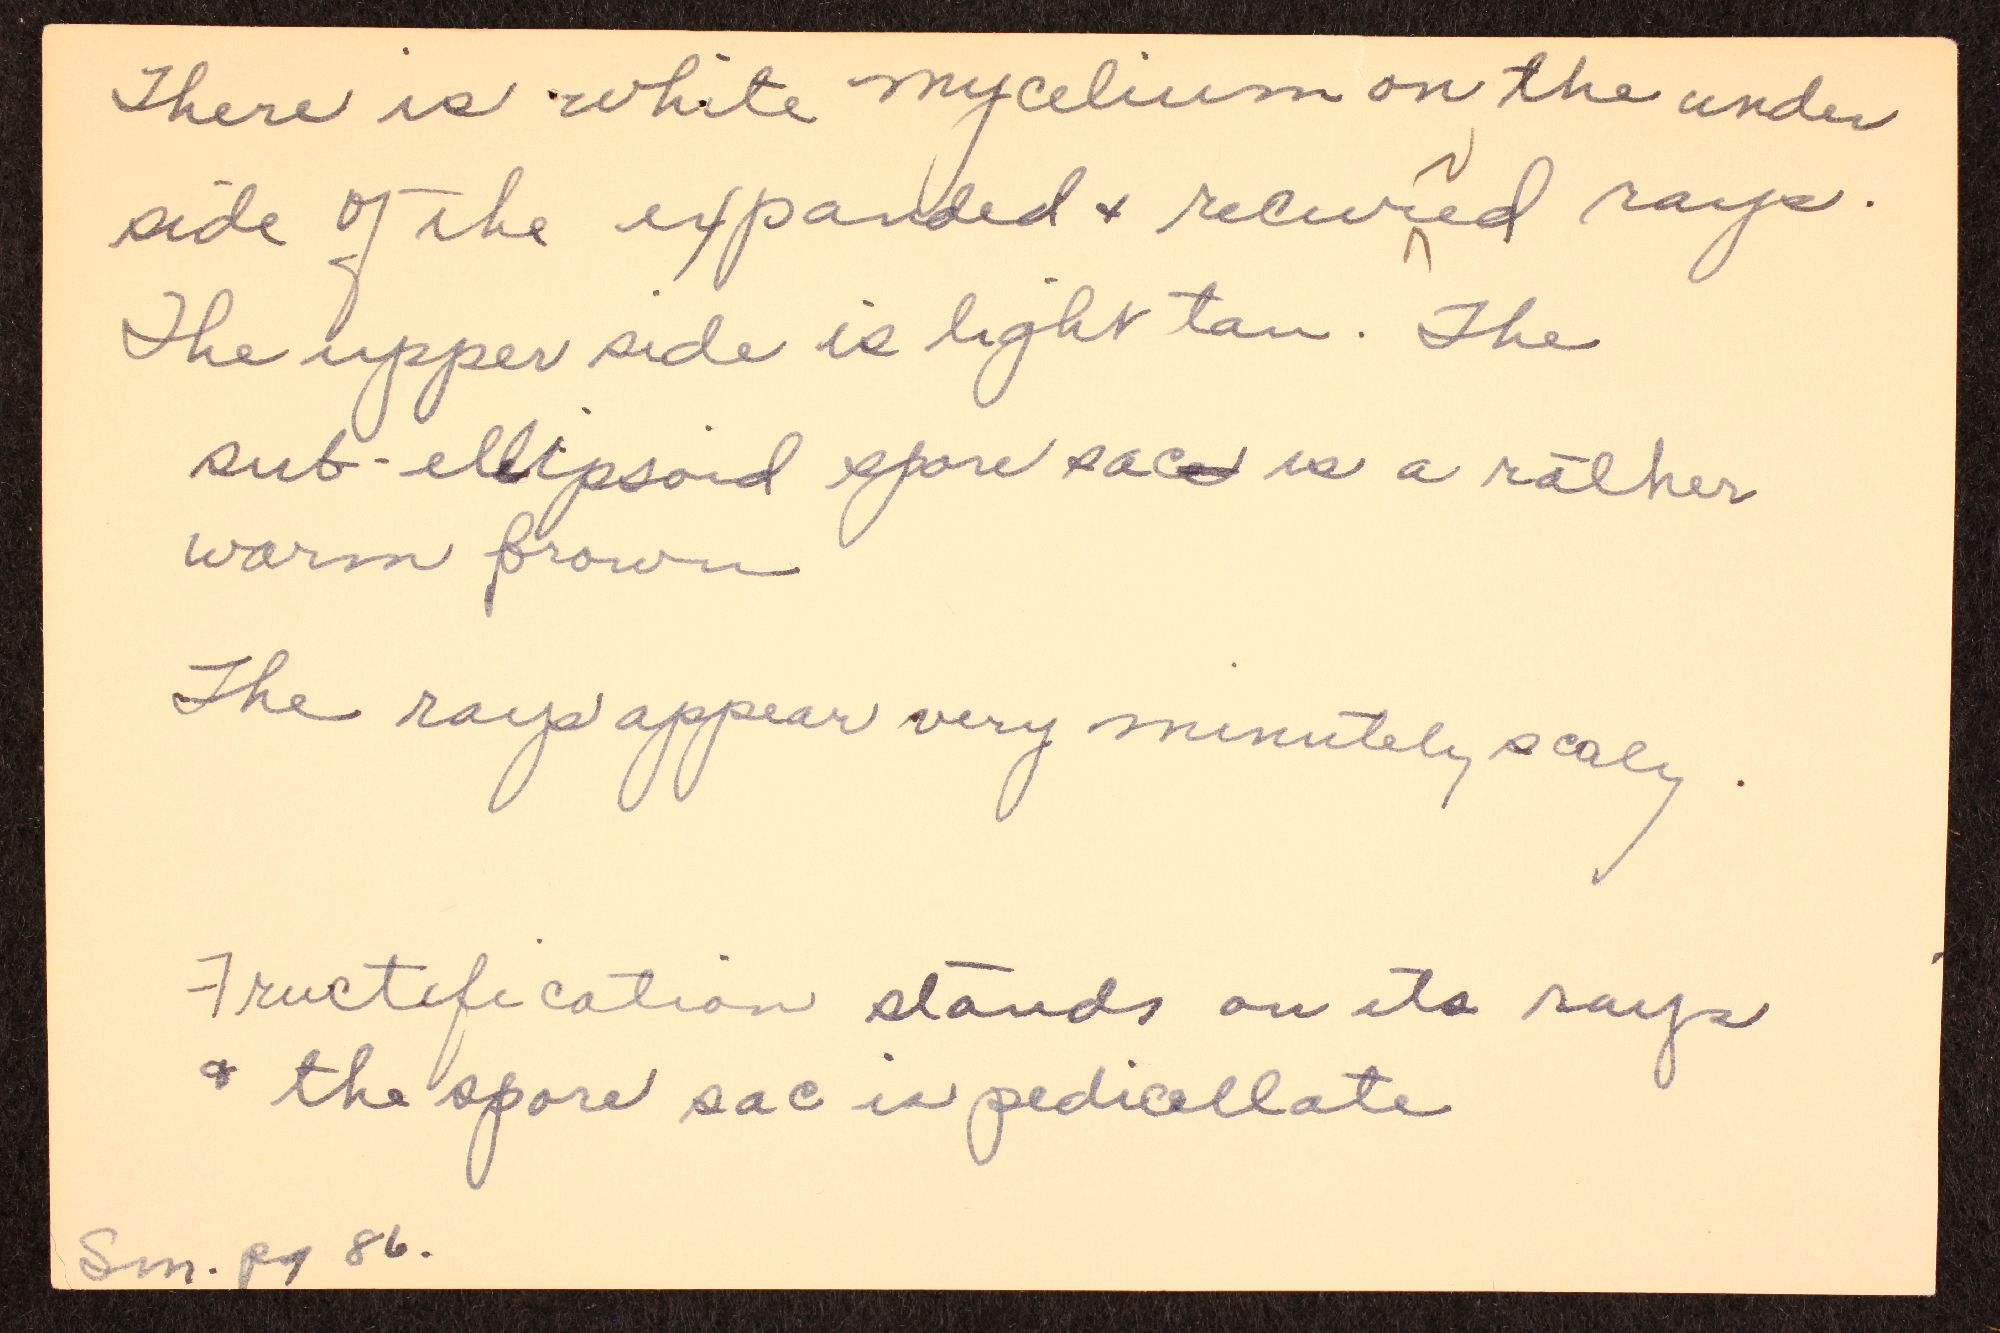 There is white mycelium on the under
side of the expanded & recurved rays.
The upper side is light tan. The
sub-ellipsoid spore sac is a rather
warm brown
The rays appear very minutely scaly.
Fructification stands on its rays
& the spore sac is pedicellate
Sm. pg 86.